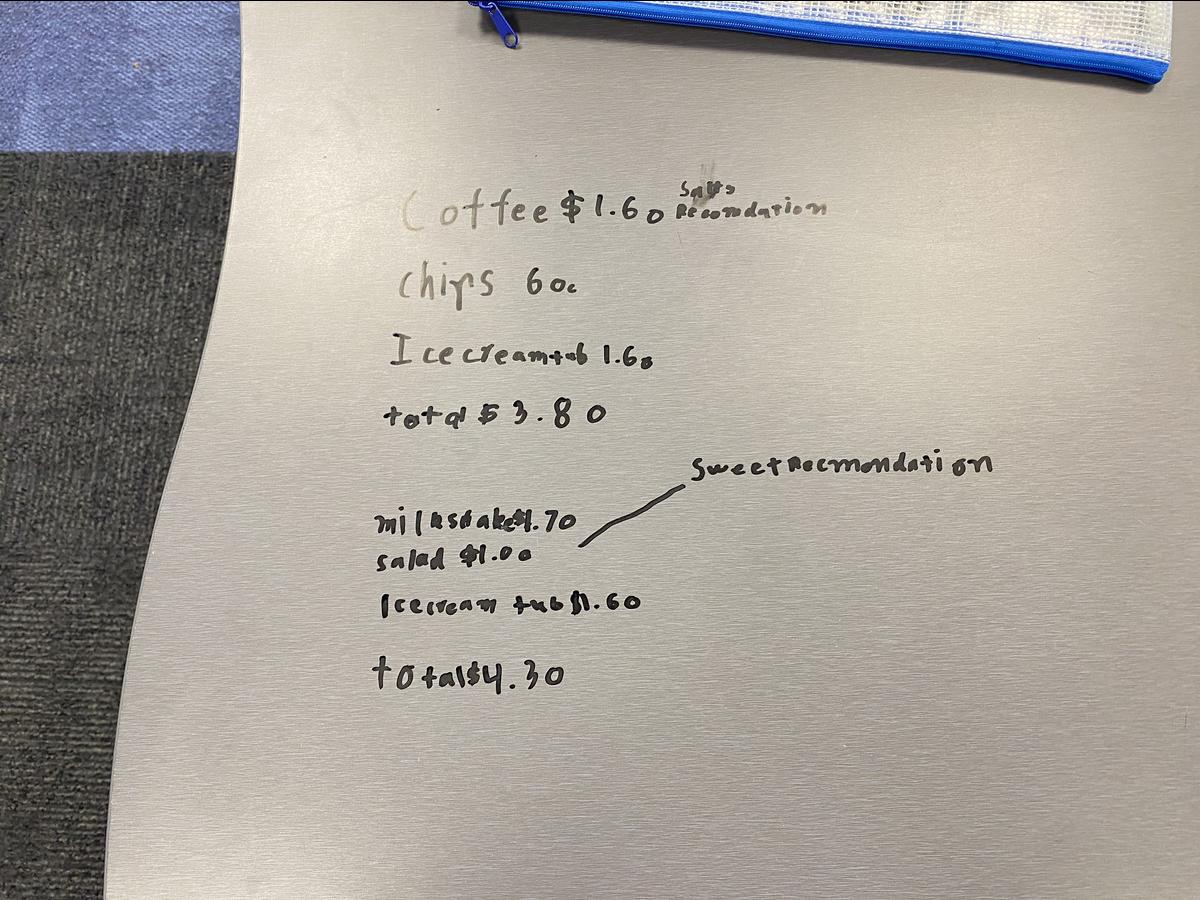 Coffee $1.60
Recomdation
chips 60c
Icecreamtub 1.60
total $ 3.80
sweet Recmondation
milkshake$1.70
salad $1.00
Icecream tub $1.60
total$4.30